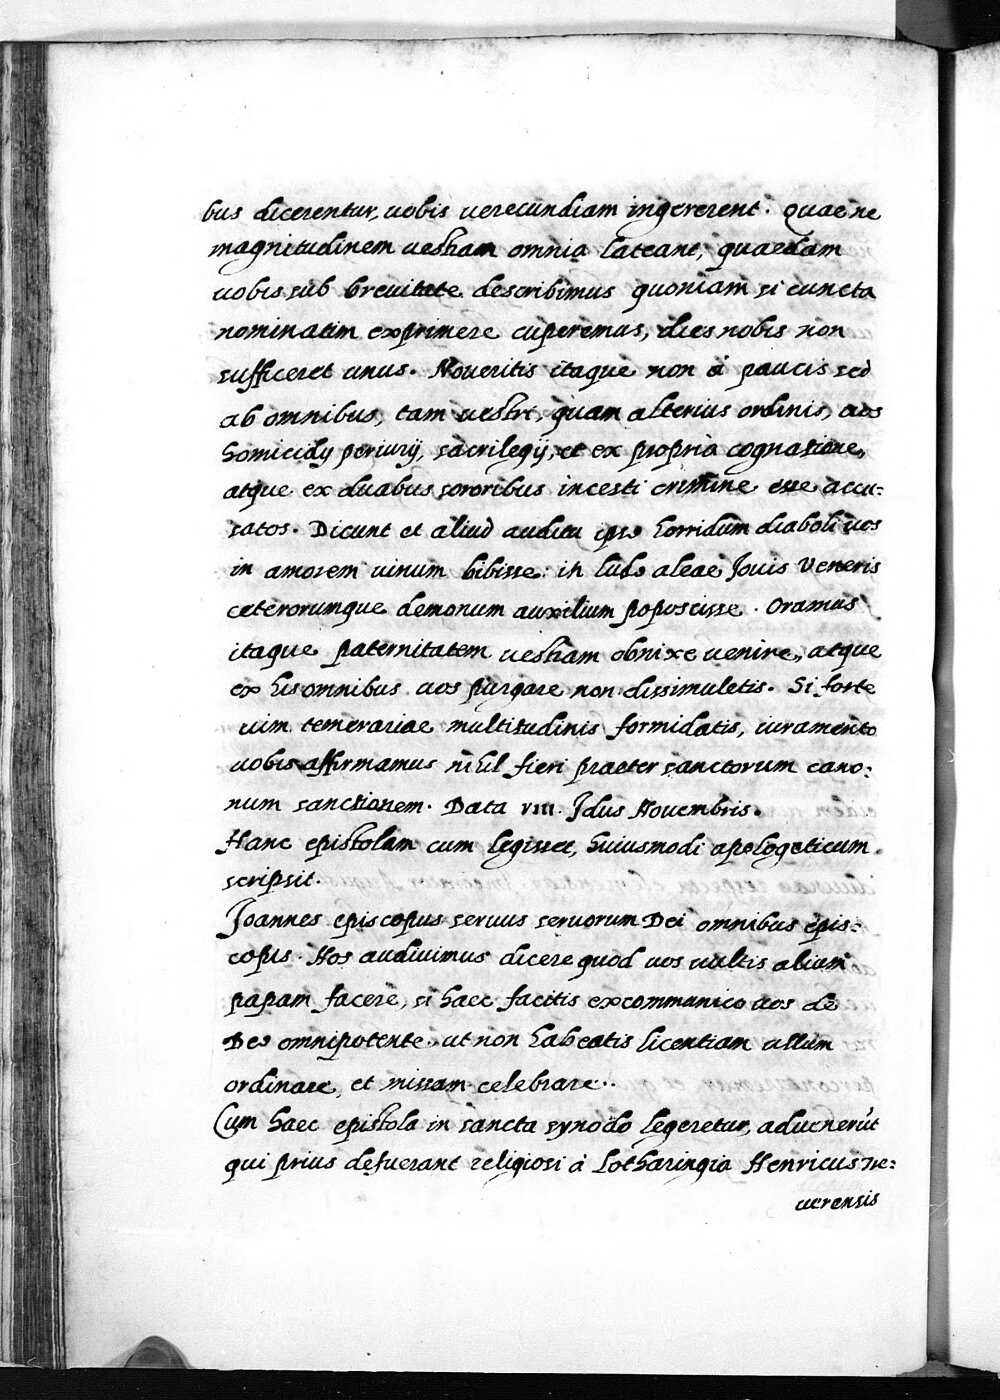 bus dicerentur, uobis uerecundiam ingererent. Quae ne
magnitudinem uestram omnia lateant, quaedam
uobis sub breuitate describimus quoniam si cuncta
nominatim exprimere cuperemus, dies nobis non
sufficeret unus. Noueritis itaque non à paucis sed
ab omnibus, tam uestri, quam alterius ordinis, uos
homicidy periurij, sacrilegij, et ex propria cognatione,
atque ex duabus sororibus incesti crimine esse accu:
satos. Dicunt et aliud auditu ipso horridum diaboli uos
in amorem uinum bibisse: in ludo aleae Jouis Veneris
ceterorumque demonum auxilium poposcisse. Oramus
itaque paternitatem uestram obnixe uenire, atque
ex his omnibus uos purgare non dissimuletis. Si forte
uim temerariae multitudinis formidatis, iuramento
uobis affirmamus nihil fieri praeter sanctorum cano:
num sanctionem. Data VIII. Idus Nouembris.
Hanc epistolam cum legisset, huiusmodi apologeticum
scripsit.
Joannes episcopus seruus seruorum Dei omnibus epis:
copis. Nos audiuimus dicere quod uos uultis alium
papam facere, si haec facitis excommunico uos de
Deo omnipotente, ut non habeatis licentiam ullum
ordinare, et missam celebrare..
Cum haec epistola in sancta synodo legeretur, aduenerūt
qui prius defuerant religiosi à Lotharingia Henricus Tre:
uerensis